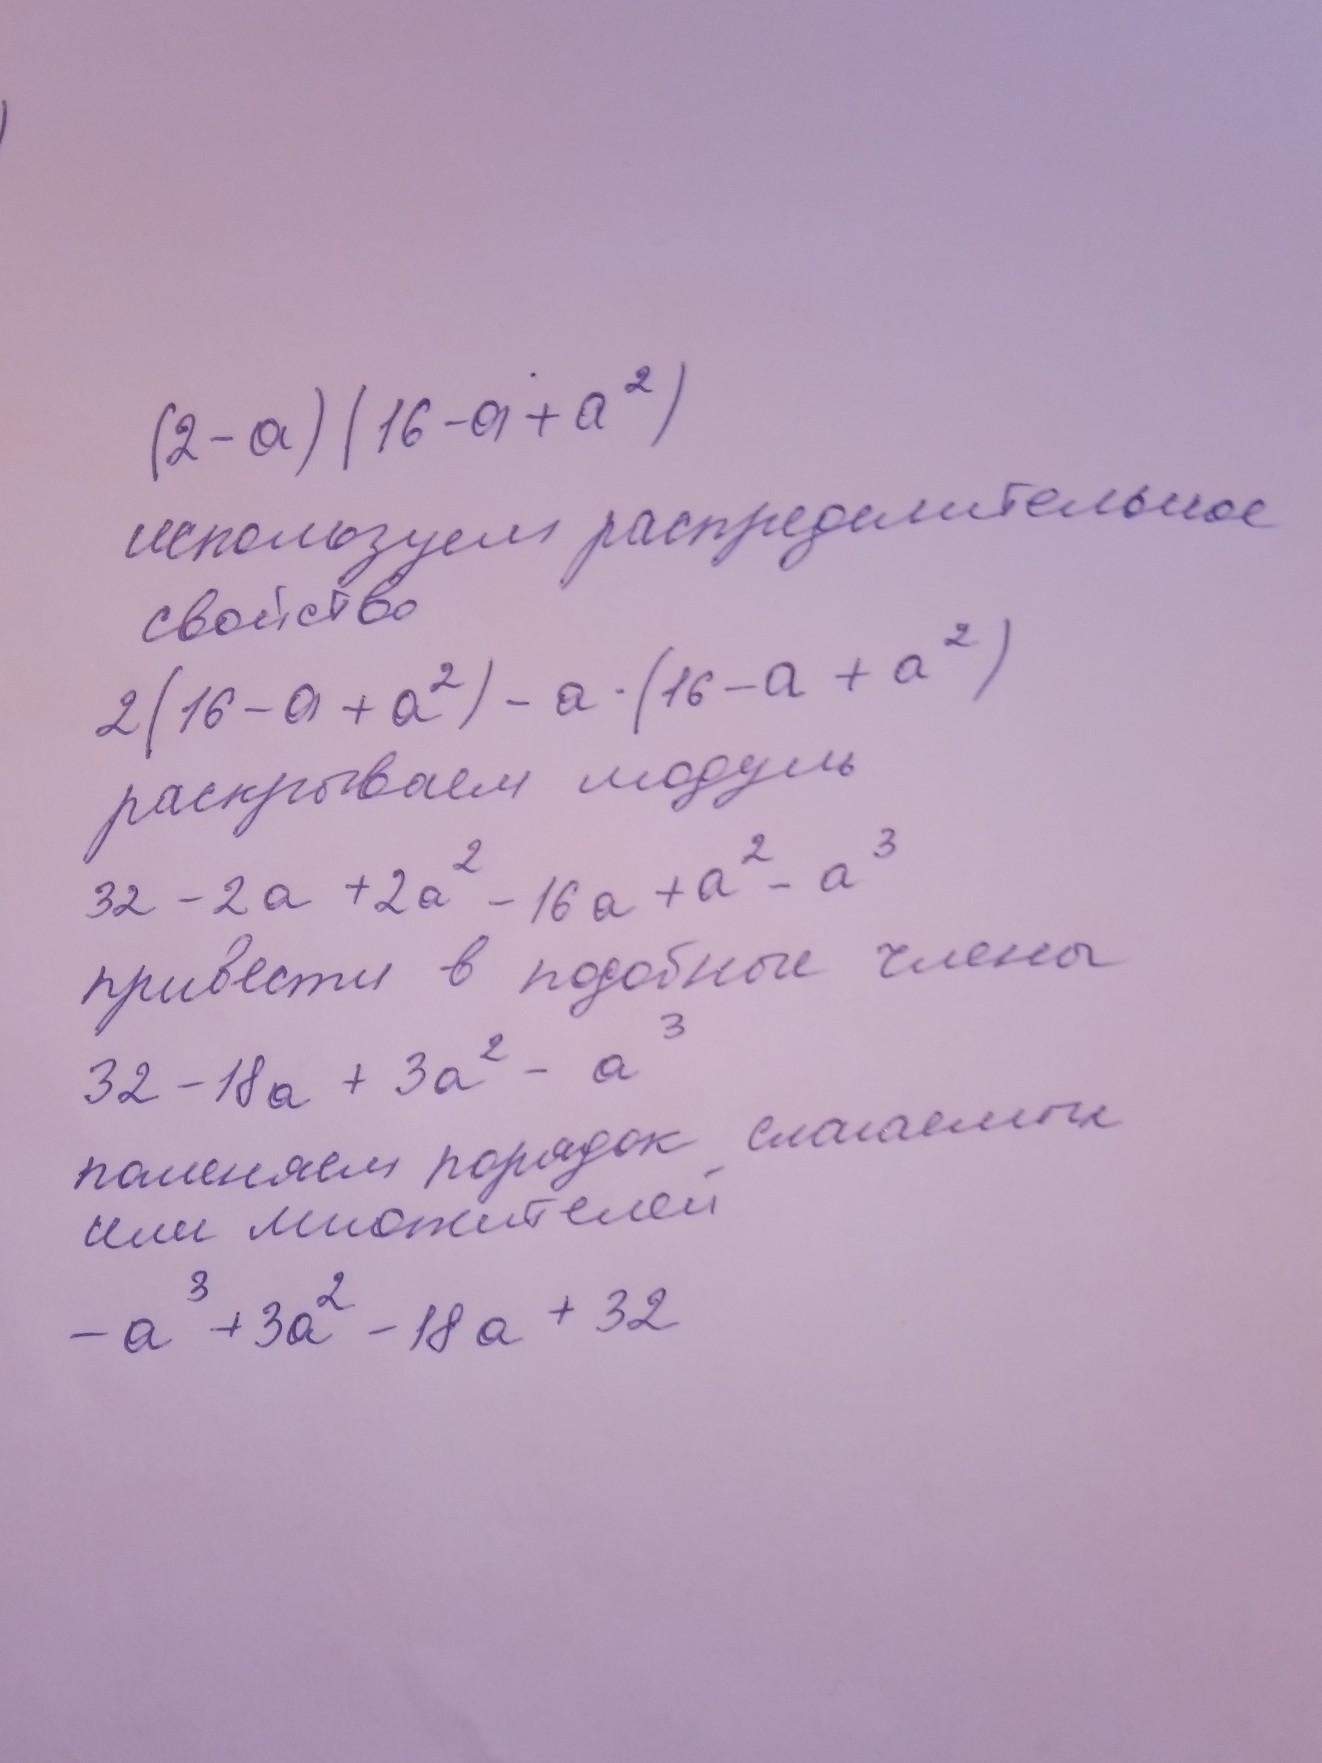 (2-a)(16-a+a²)
используем распределительное
свойство
2(16-a+a²)-a·(16-a+a²)
раскрываем модуль
32-2a+2a²-16a+a²-a³
привести в подобные члены
32-18a+3a²-a³
поменяем порядок слагаемых
или множителей
-a³+3a²-18a+32